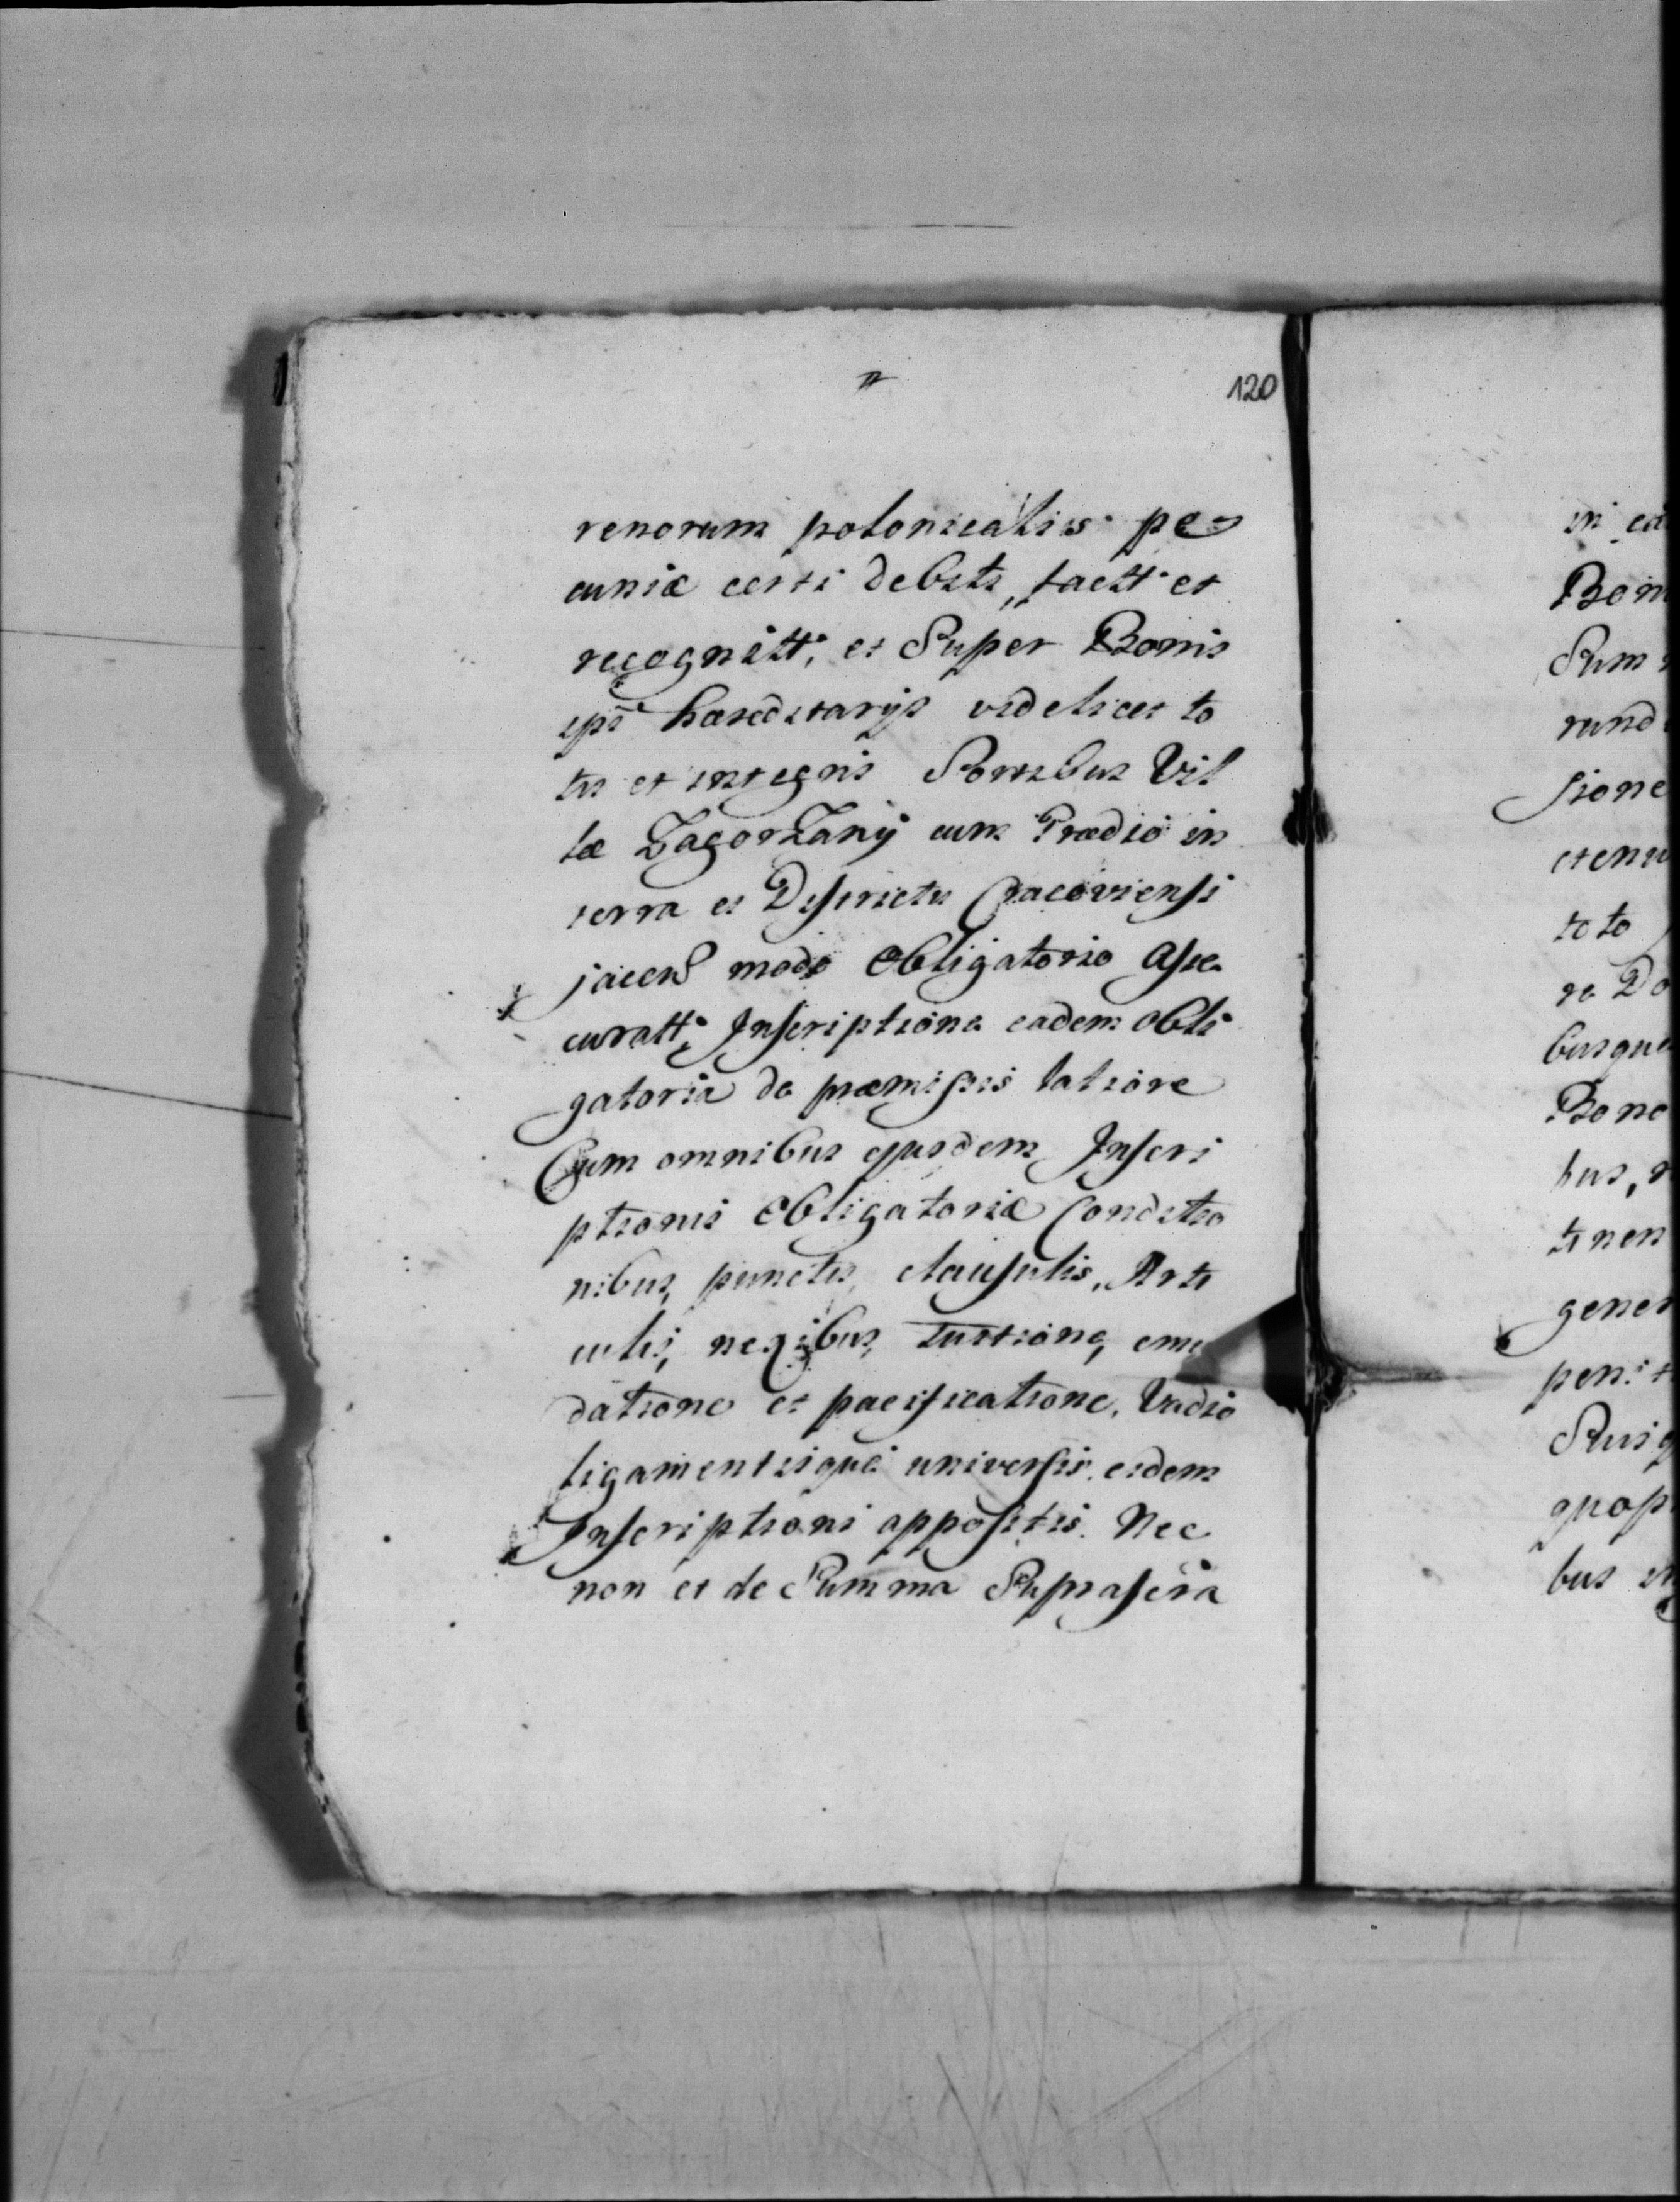 120
renorum polonicalis pe-
cuniæ certi debiti, factt. et
recognitt. et Super Bonis
ips. hæreditarijs videlicet to
tis et integris Sortibus Vil
læ Zagorzany cum Prædio in
terra et Districtu Cracoviensi
jacen modo Obligatorio Asse
curatt. Inscriptione eadem obli
gatoria de præmissis latiore
Cum omnibus ejusdem Inscri
ptionis Obligatoriæ Conditio
nibus, punctis, clausulis, Arti
culis, nexibus, tuitione,
datione et pacificatione, Vadio
ligamentisque universis eidem
Inscriptioni appositis. Nec
non et de Summa Suprascri
Bon
Sum
rund
sione
toto
re Do
busque
Bono
bus,
tinen
gener
peni
quop
bus